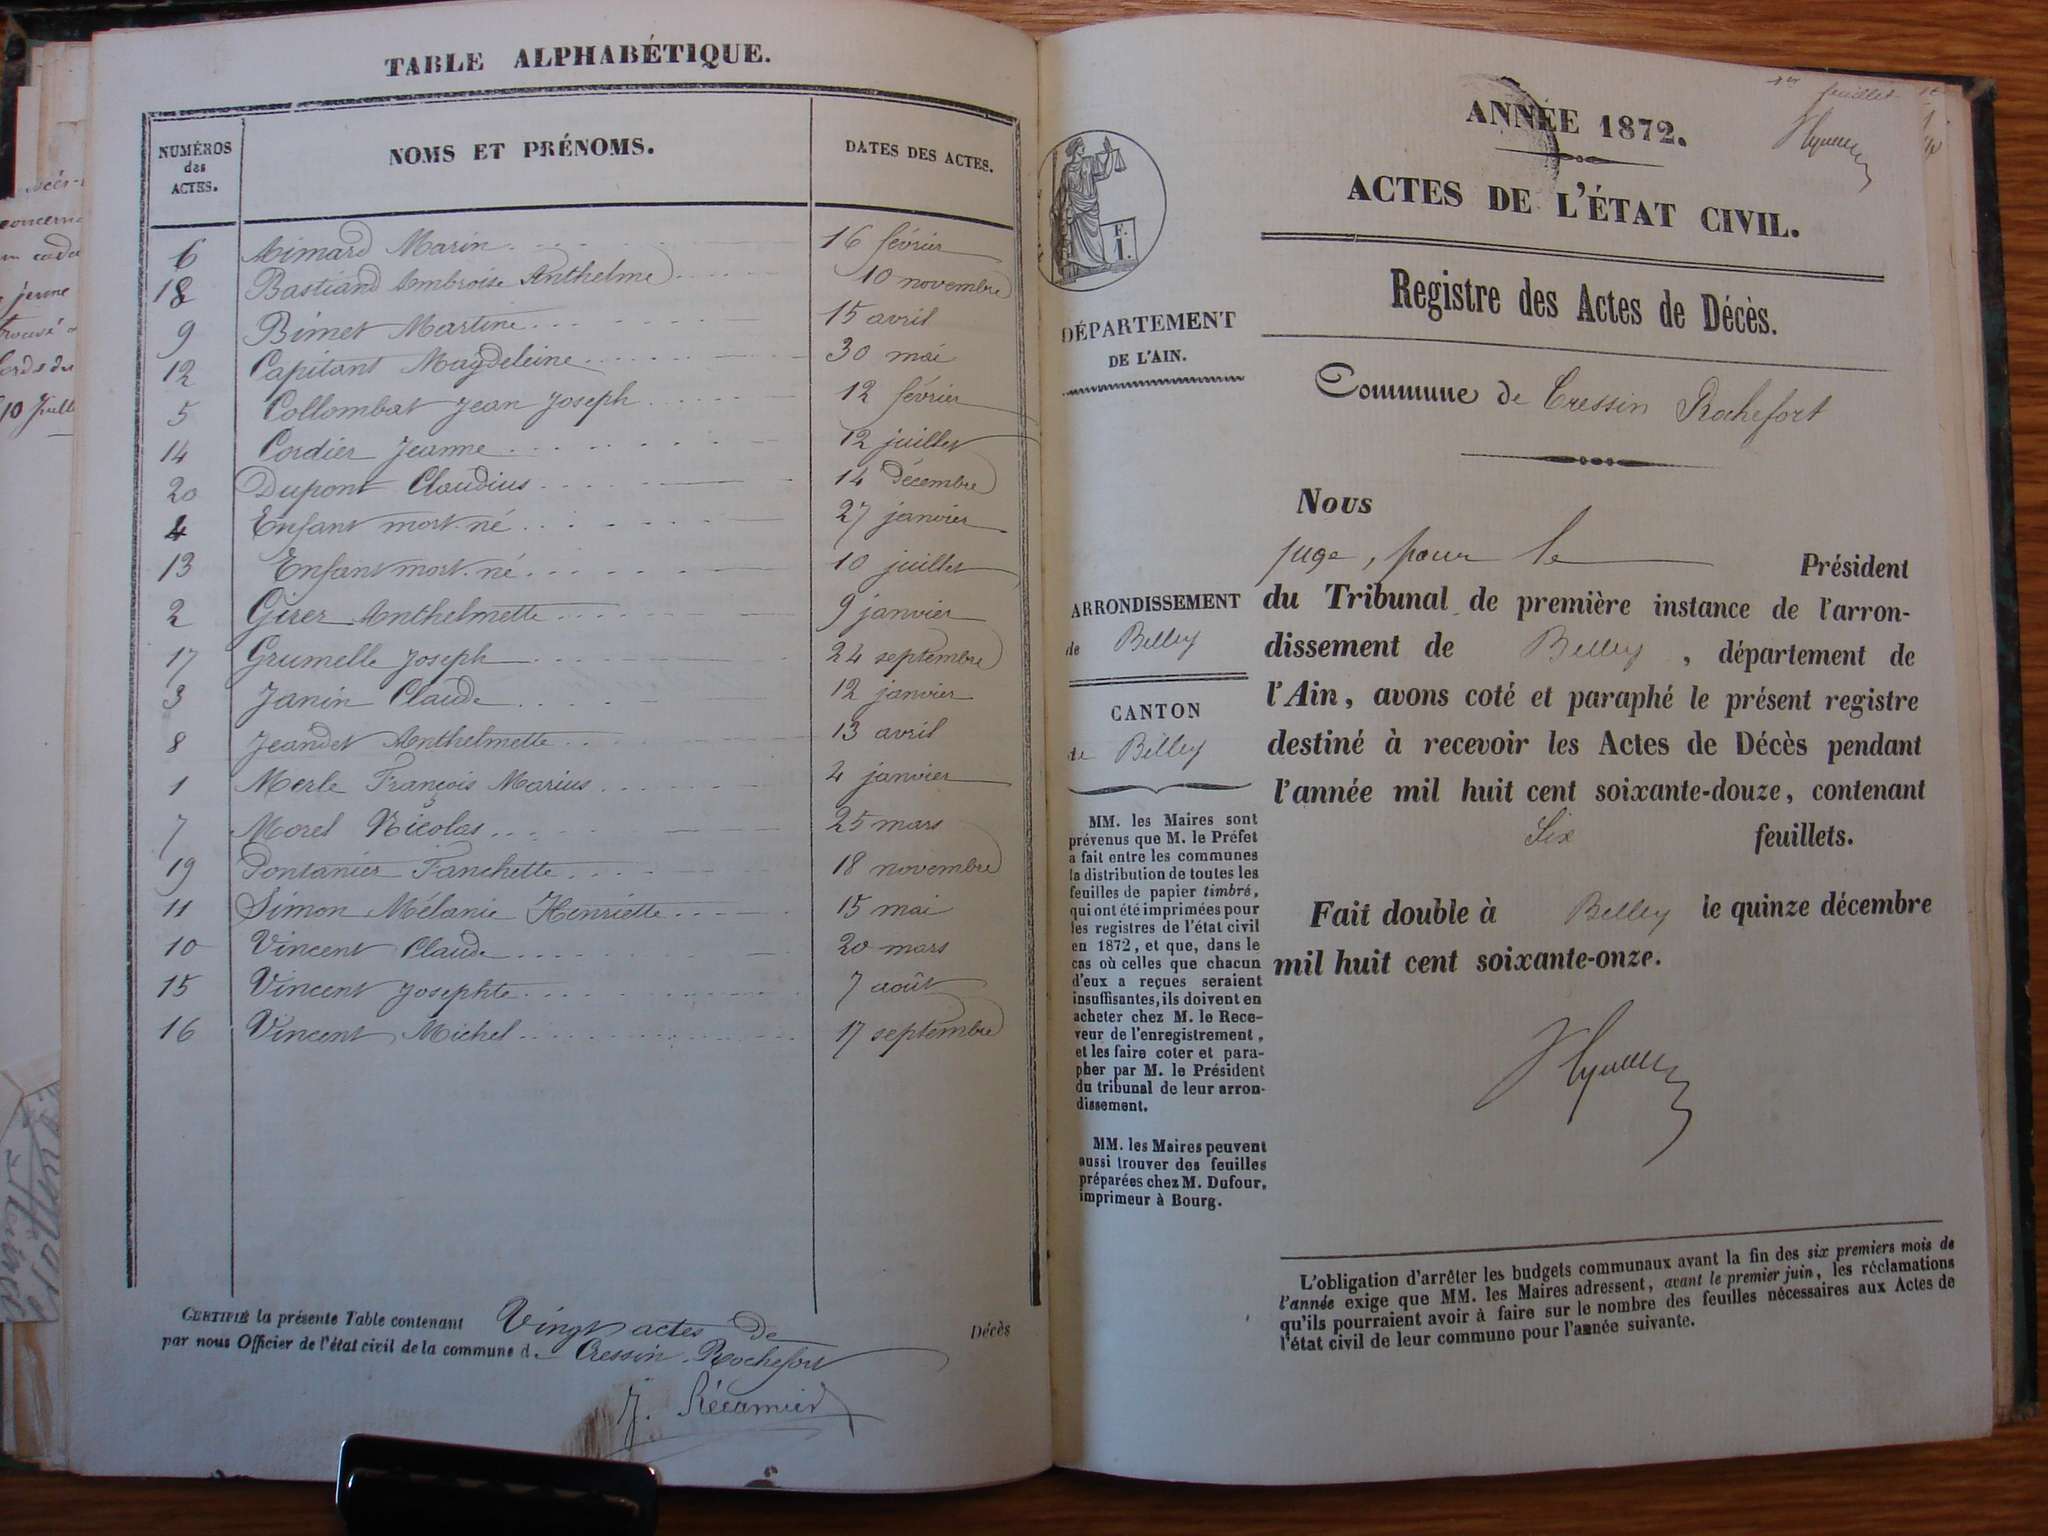 TABLE ALPHABÉTIQUE.
NUMÉROS
des
ACTES.
NOMS ET PRÉNOMS.
DATES DES ACTES.
6 Aimard Marin 16 février
18 Bastiand Ambroise Anthelme 10 novembre
9 Bimet Martine 15 avril
12 Capitant Magdeleine 30 mai
5 Collombat Jean Joseph 12 février
14 Cordier Jeanne 12 juillet
20 Dupont Claudius 14 décembre
4 Enfant mort-né 27 janvier
13 Enfant mort-né 10 juillet
2 Girer Anthelmette 9 janvier
17 Grumelle Joseph 24 septembre
3 Janin Claude 12 janvier
8 Jeandet Anthelmette 13 avril
1 Merle François Marius 4 janvier
7 Morel Nicolas 25 mars
19 Pontanier Fanchette 18 novembre
11 Simon Mélanie Henriette 15 mai
10 Vincent Claude 20 mars
15 Vincent Josephte 7 août
16 Vincent Michel 17 septembre
CERTIFIÉ la présente Table contenant Vingt actes de Décès
par nous Officier de l'état civil de la commune de Cressin-Rochefort
J. Récamier
1er feuillet
ANNÉE 1872.
ACTES DE L'ÉTAT CIVIL.
Registre des Actes de Décès.
F.
1.
DÉPARTEMENT
DE L'AIN.
Commune de Cressin Rochefort
Nous
juge, pour le Président
du Tribunal de première instance de l'arron-
dissement de Belley, département de
l'Ain, avons coté et paraphé le présent registre
destiné à recevoir les Actes de Décès pendant
l'année mil huit cent soixante-douze, contenant
Six feuillets.
Fait double à Belley le quinze décembre
mil huit cent soixante-onze.
ARRONDISSEMENT
de Belley
CANTON
de Belley
MM. les Maires sont
prévenus que M. le Préfet
a fait entre les communes
la distribution de toutes les
feuilles de papier timbré,
qui ont été imprimées pour
les registres de l'état civil
en 1872, et que, dans le
cas où celles que chacun
d'eux a reçues seraient
insuffisantes, ils doivent en
acheter chez M. le Rece-
veur de l'enregistrement,
et les faire coter et para-
pher par M. le Président
du tribunal de leur arron-
dissement.
MM. les Maires peuvent
aussi trouver des feuilles
préparées chez M. Dufour,
imprimeur à Bourg.
L'obligation d'arrêter les budgets communaux avant la fin des six premiers mois de
l'année exige que MM. les Maires adressent, avant le premier juin, les réclamations
qu'ils pourraient avoir à faire sur le nombre des feuilles nécessaires aux Actes de
l'état civil de leur commune pour l'année suivante.